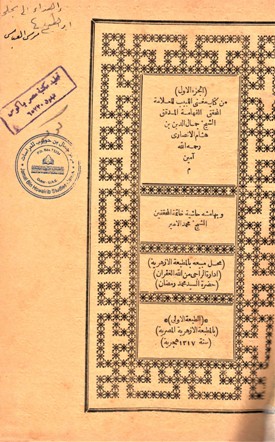 (الجزء الاول)
من كتاب مغنى اللبيب للعلامة
المحقق الفهامة المدقق
الشيخ جمال الدين بن
هشام الانصارى
رحمه الله
آمين
م
وبهامشه حاشية خاتمة المحققين
الشيخ محمد الامير
(محل مبيعه بالمطبعة الازهرية)
(ادارة الراجى من الله الغفران)
(حضرة السيد محمد رمضان)
(الطبعة الاولى)
(بالمطبعة الازهرية المصرية)
(سنة ١٣١٧ هجرية)